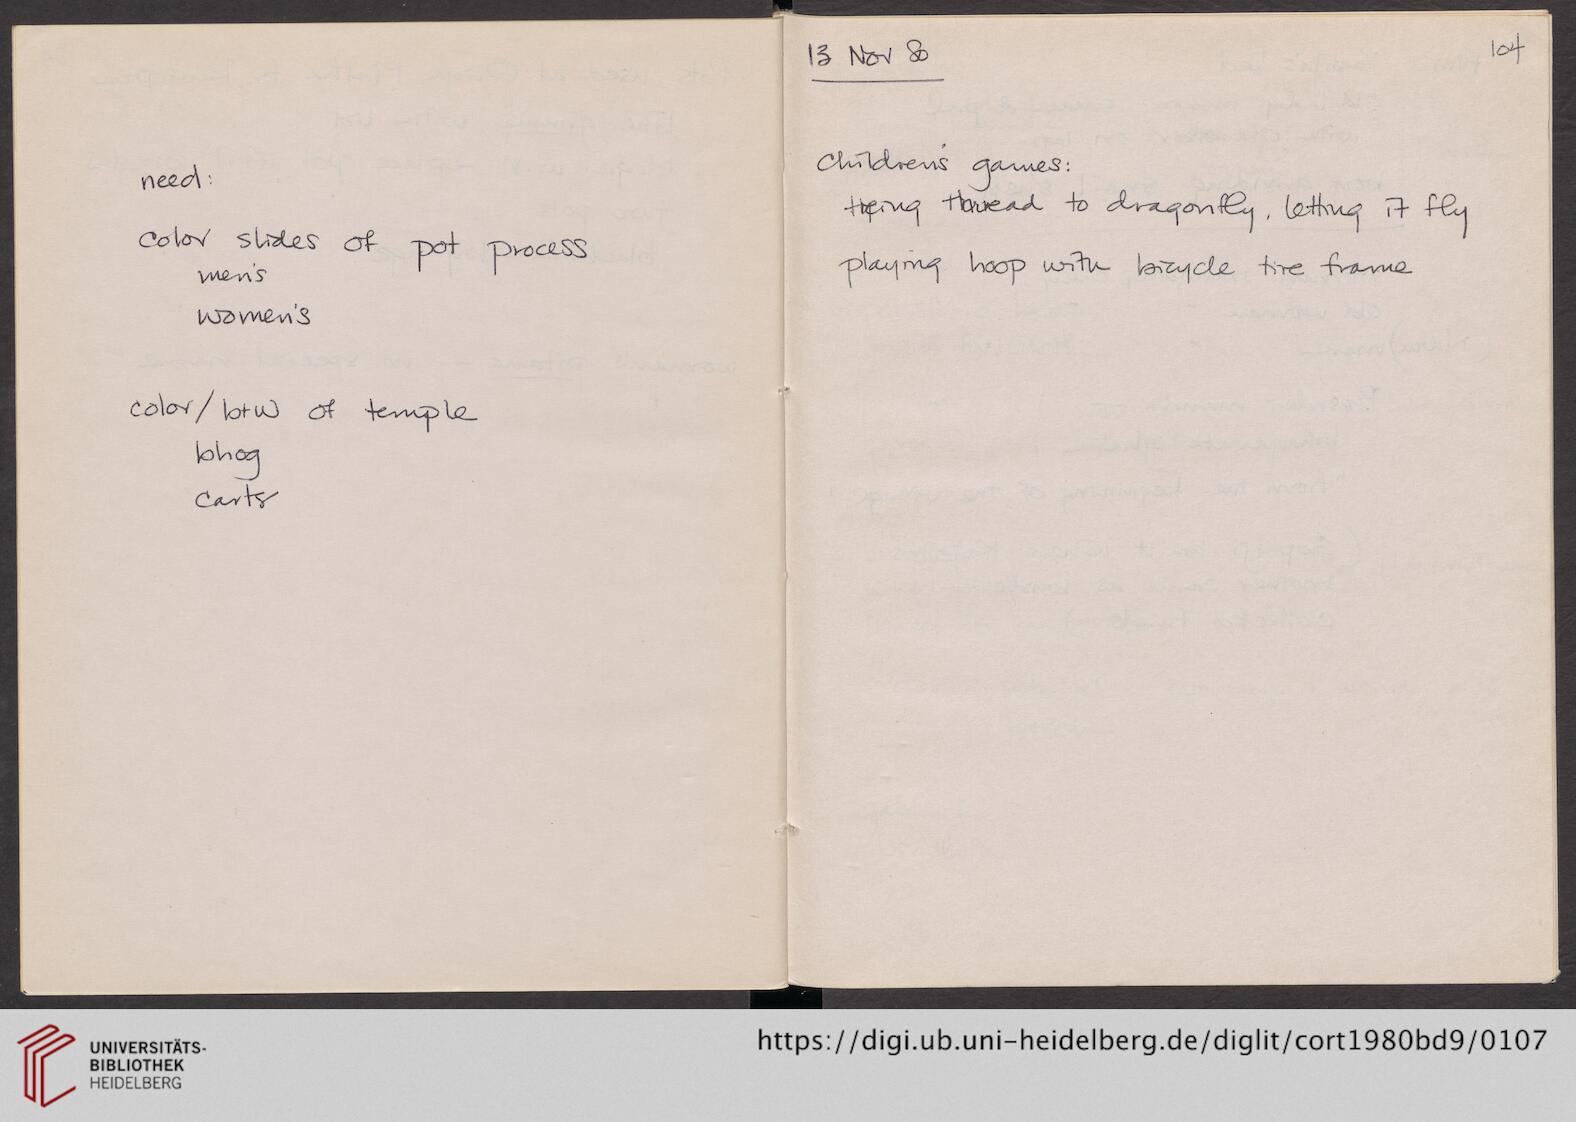 need:
color slides of pot process
men's
women's
color/b+w of temple
bhog
carts
13 Nov 80
104
Children's games:
tying thread to dragonfly, letting it fly
playing hoop with bicycle tire frame
UNIVERSITÄTS-
BIBLIOTHEK
HEIDELBERG
https://digi.ub.uni-heidelberg.de/diglit/cort1980bd9/0107